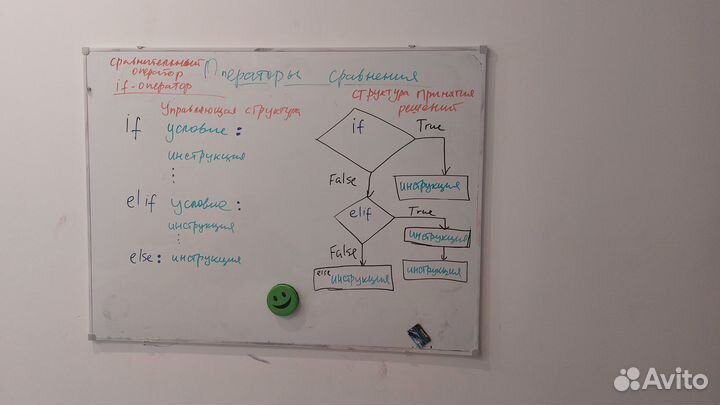 сравнительный
оператор
if-оператор
Операторы сравнения
Управляющая структура
if условие:
инструкция
⋮
elif условие:
инструкция
⋮
else: инструкция
структура принятия
решений
if
True
инструкция
False
elif
True
инструкция
инструкция
False
else инструкция
Avito